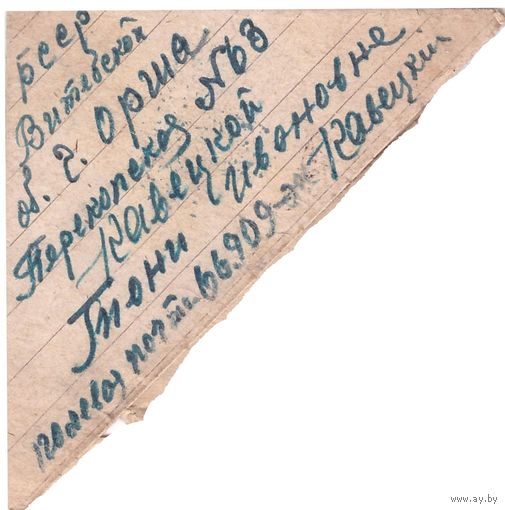 БССР
Витебской
об. г. Орша
Перекопская №63
Кавецкой
Тони Ивоновне
полевая почта 66909-ж Кавецкий
www.ay.by